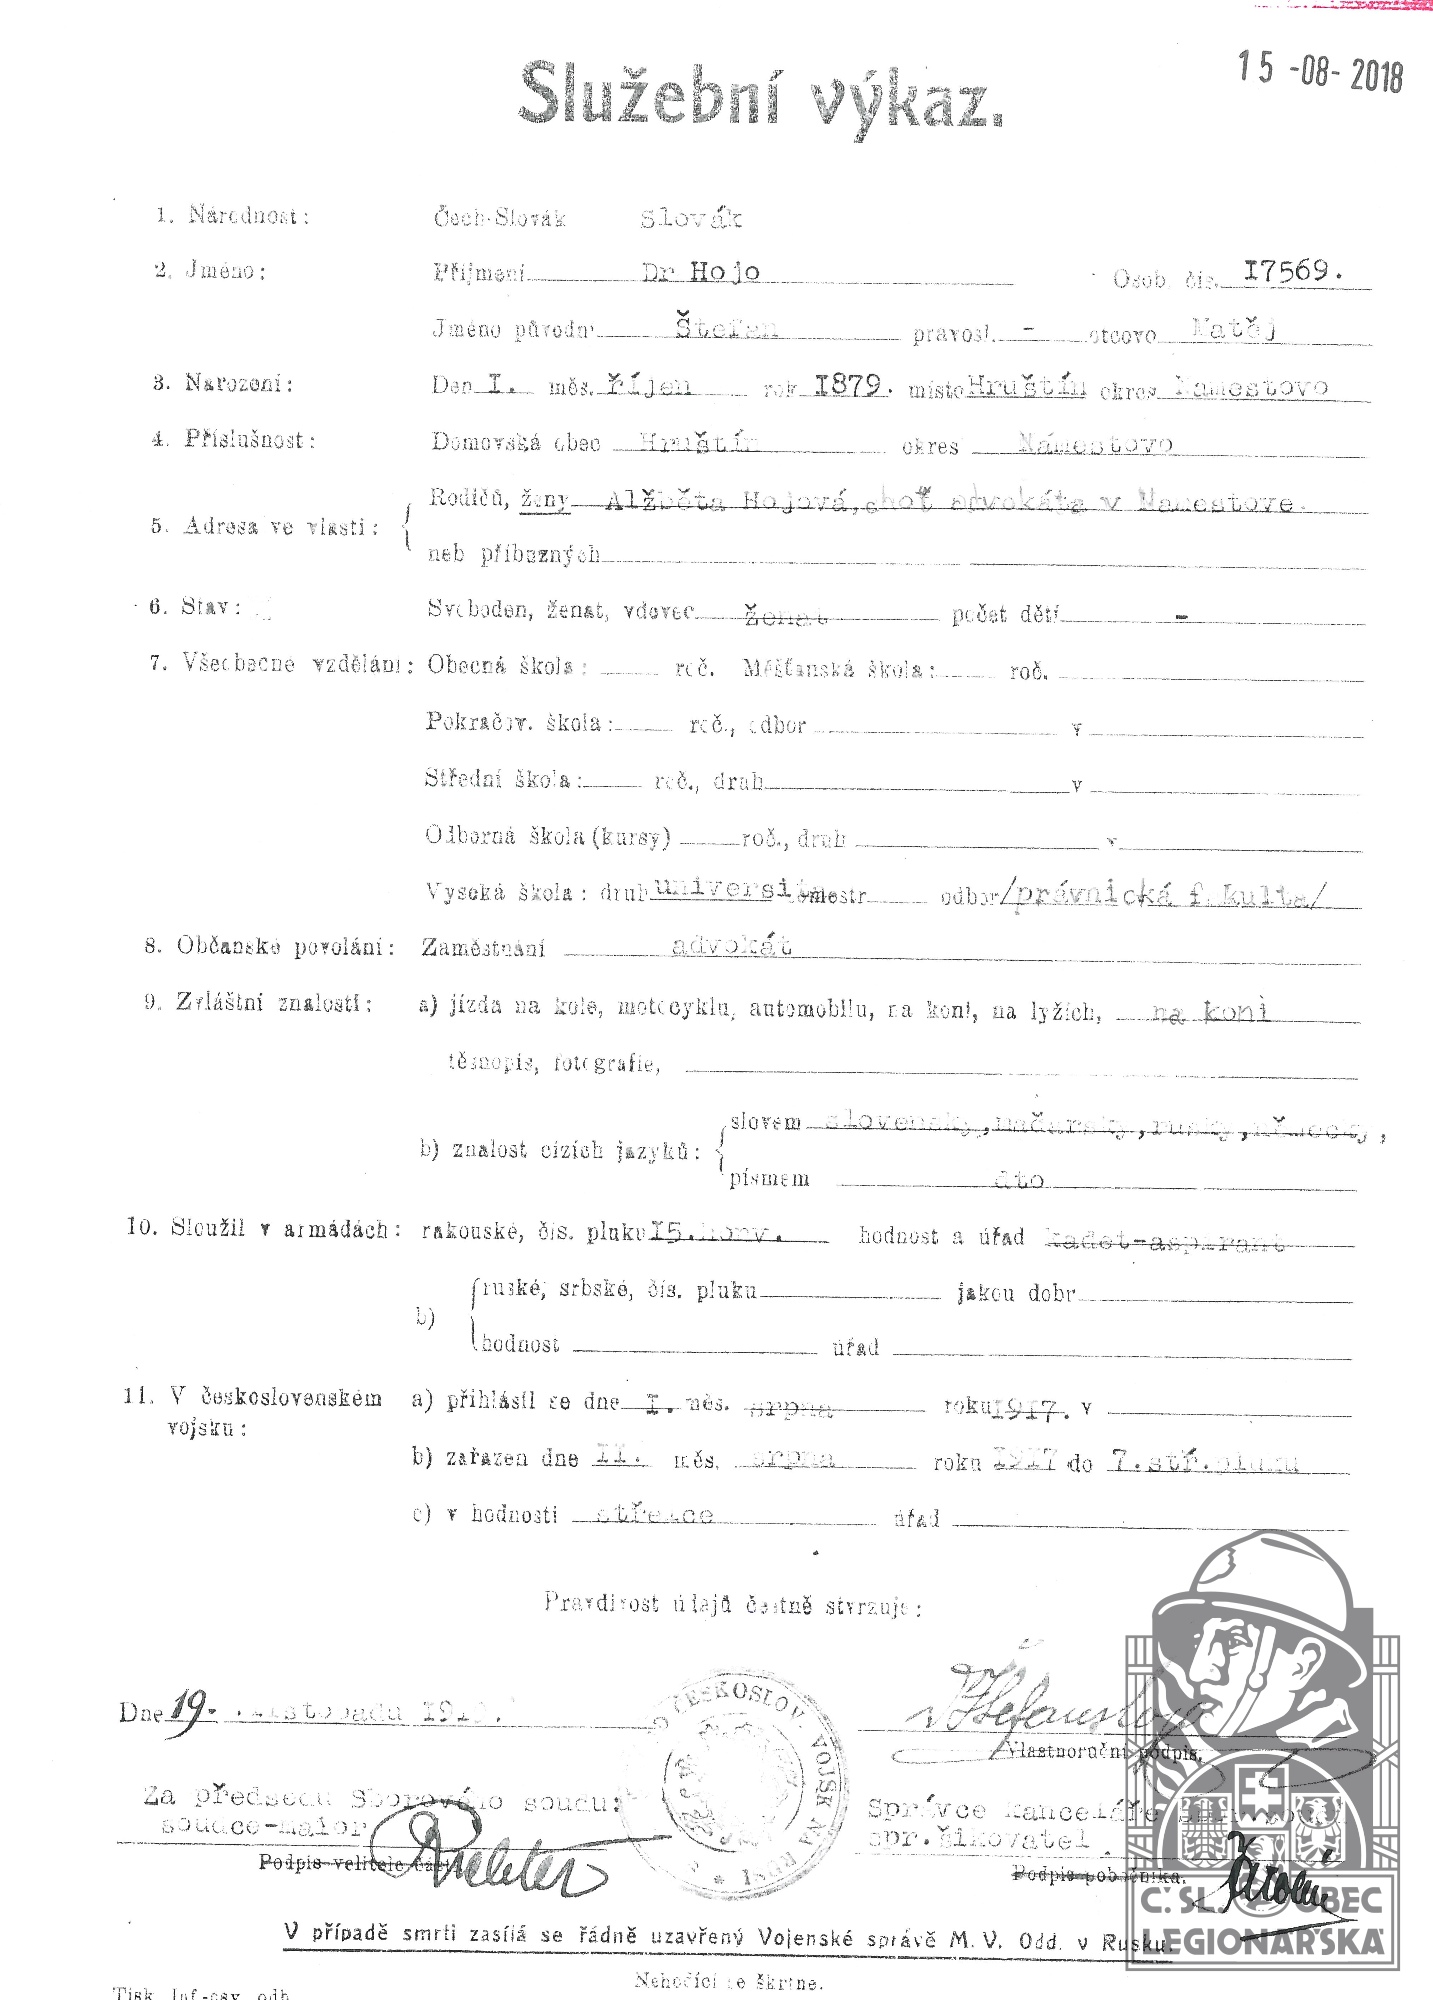 15 -08- 2018
Služební výkaz.
1. Národnost: Čech-Slovák Slovák
2. Jméno: Příjmení Dr Hojo Osob. čís. I7569.
Jméno původní Štefan pravosl. - otcovo Matěj
3. Narození: Den I. měs. říjen rok 1879. místo Hruštín okres Namestovo
4. Příslušnost: Domovská obec Hruštín okres Námestovo
5. Adresa ve vlasti: Rodičů, ženy Alžběta Hojová, choť advokáta v Namestove.
neb příbuzných
6. Stav: Svoboden, ženat, vdovec ženat počet dětí -
7. Všeobecné vzdělání: Obecná škola: roč. Měšťanská škola: roč.
Pokračov. škola: roč., odbor v
Střední škola: roč., druh v
Odborná škola (kursy) roč., druh v
Vysoká škola: druh universi semestr odbor /právnická f. kulta/
8. Občanské povolání: Zaměstnání advokát
9. Zvláštní znalosti: a) jízda na kole, motocyklu, automobilu, na koni, na lyžích, na koni
těsnopis, fotografie,
b) znalost cizích jazyků: slovem slovensky, maďarsky, rusky, německy,
písmem dto
10. Sloužil v armádách: rakouské, čís. pluku I5.honv. hodnost a úřad kadet-aspirant
b) ruské, srbské, čís. pluku jakou dobr
hodnost úřad
11. V československém vojsku: a) přihlásil se dne I. měs. srpna roku 1917. v
b) zařazen dne II. měs. srpna roku 1917 do 7.stř.pluku
c) v hodnosti střelce úřad
Pravdivost údajů čestně stvrzuje:
Dne 19. listopadu
ČESKOSLOV. VOJSK NA RUSI
Vlastnoruční podpis.
Za předsedu Sborového soudu:
soudce-maior
Správce kanceláře
spr.šikovatel
Podpis velitele části
Podpis pobočníka.
Č·SL· OBEC
LEGIONÁŘSKÁ
V případě smrti zasílá se řádně uzavřený Vojenské správě M. V. Odd. v Rusku.
Nehodící se škrtne.
Tisk. Inf.-osv. odb.